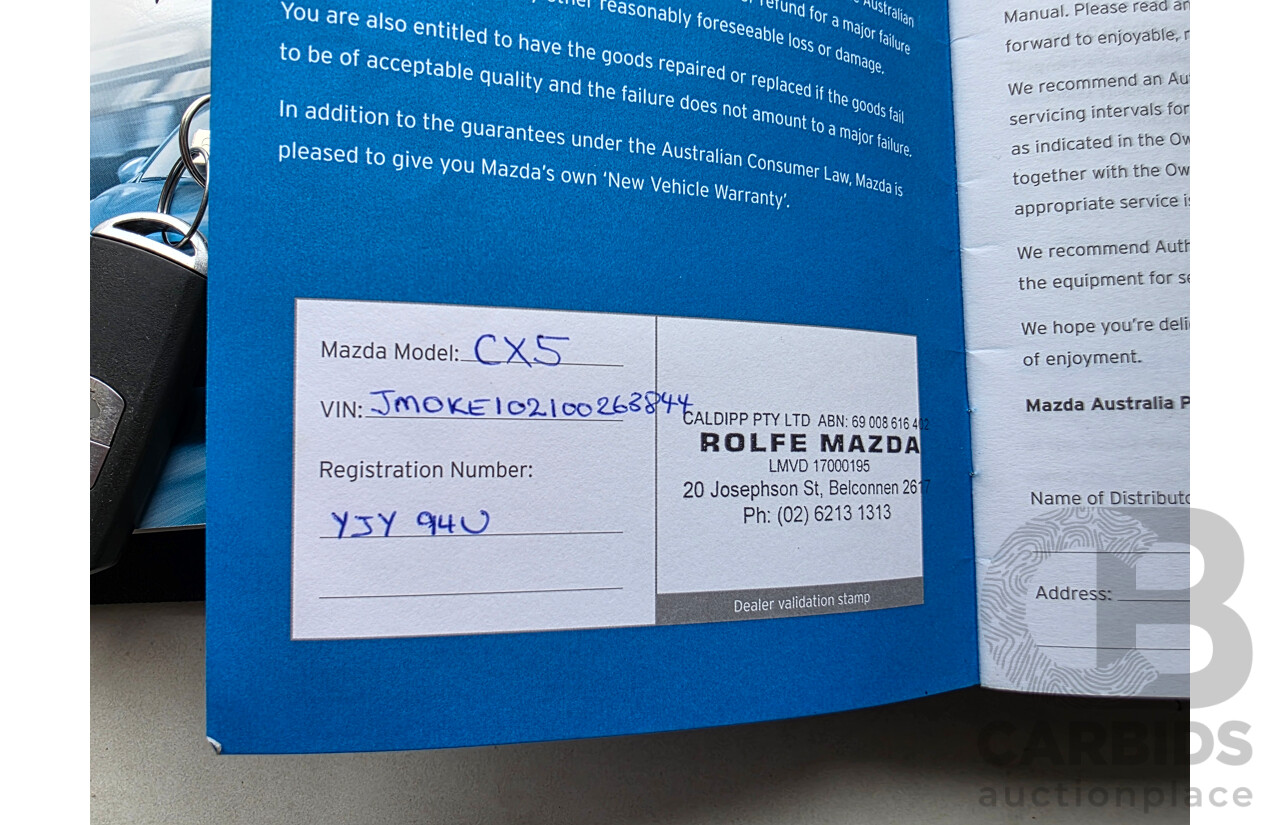 Australian
refund for a major failure
reasonably foreseeable loss or damage.
You are also entitled to have the goods repaired or replaced if the goods fail
to be of acceptable quality and the failure does not amount to a major failure.
In addition to the guarantees under the Australian Consumer Law, Mazda is
pleased to give you Mazda's own 'New Vehicle Warranty'.
Mazda Model: CX5
VIN: JM0KE102100263844
Registration Number:
YJY 94U
CALDIPP PTY LTD ABN: 69 008 616 402
ROLFE MAZDA
LMVD 17000195
20 Josephson St, Belconnen 2617
Ph: (02) 6213 1313
Dealer validation stamp
Manual. Please read
forward to enjoyable,
We recommend an
servicing intervals for
as indicated in the
together with the
appropriate service
We recommend
the equipment for
We hope you're
of enjoyment.
Mazda Australia
Name of
Address:
CB
CARBIDS
auctionplace